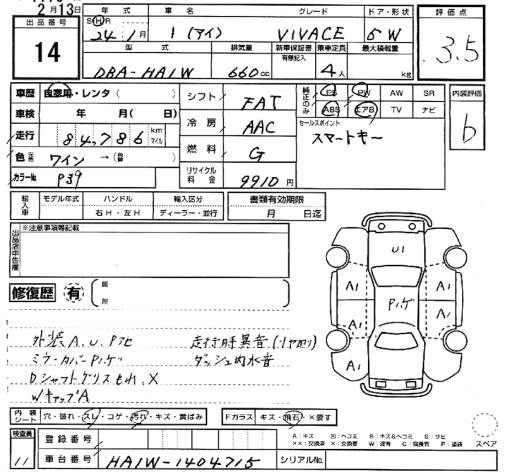 2月13日
出品番号
14
年式 車名 グレード ドア・形状
S・H・R
24年1月 i(アイ) VIVACE 5W
型式 排気量 新車保証書 有無記入 乗車定員 最大積載量
DBA-HA1W 660cc 4人 kg
評価点
3.5
車歴 自家用・レンタ( )
車検 年 月( 日)
走行 84,786 km マイル
色 ワイン →( )
カラーNo. P39
シフト FAT
冷房 AAC
燃料 G
リサイクル料金 9910円
純正のみ PS PW AW SR
ABS エアB TV ナビ
セールスポイント
スマートキー
内装評価
b
輸入車 モデル年式 ハンドル 輸入区分 書類有効期限
右H・左H ディーラー・並行 月 日迄
出品店申告欄
※注意事項等記載
修復歴 有 ( 箇所
外装A、U、Pアト 走行時異音(リヤ廻り)
ミラーカバーPハゲ ダッシュ内水音
Dシャフトグリスもれ、X
WキャップA
U1
A1 A1 Pハゲ A1 A1
A1 A1
内装シート 穴・破れ・スレ・コゲ・汚れ・キズ・黄ばみ
Fガラス キズ・飛石・×要す
A:キズ U:ヘコミ B:キズ&ヘコミ S:サビ
XX:交換済 X:交換要 W:波有 C:腐食有 P:塗装
スペア
検査員
11
登録番号
車台番号 HA1W-1404715 シリアルNo.